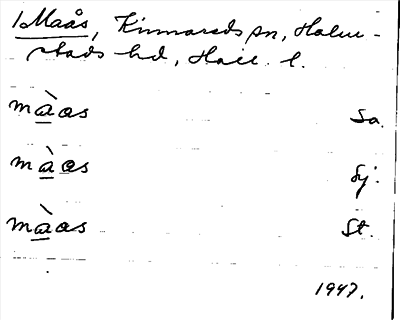 1 Maås, Kinnareds sn, Halm-
stads hd, Hall. l.
màas Sa.
màas Sj.
màas St.
1947.